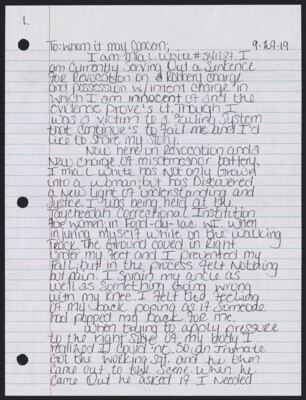 1.
To: whom it may concern, 9-29-19
I am Mia L. White # I
am currently serving out a sentence
for Revocation on a Robbery charge
and possession w/intent charge in
which I am innocent of and the
evidence prove's it. Though I
was a victim to a failing system
that continue's to fail me and I'd
like to share my story.
Now here on Revocation and a
New charge of misdemeanor battery,
I Mia L. White has not only Grown
into a woman; but has Discovered
a new light of understanding and
Justice. I was being held at the
Taycheedah Correctional Institution
for women in Fond-du-lac WI. when
injuring myself while on the walking
track. The Ground caved in Right
under my feet and I prevented my
fall; but in the process felt Nothing
but pain. I sprain my ancle as
well as something going wrong
with my knee. I felt the feeling
of my back poping as if someone
had popped my back for me.
When trying to apply pressure
to the right side of my body I
realized I could'nt. So, an Inmate
Got the working sgt. and he then
came out to the scene. When he
came out he asked if I Needed